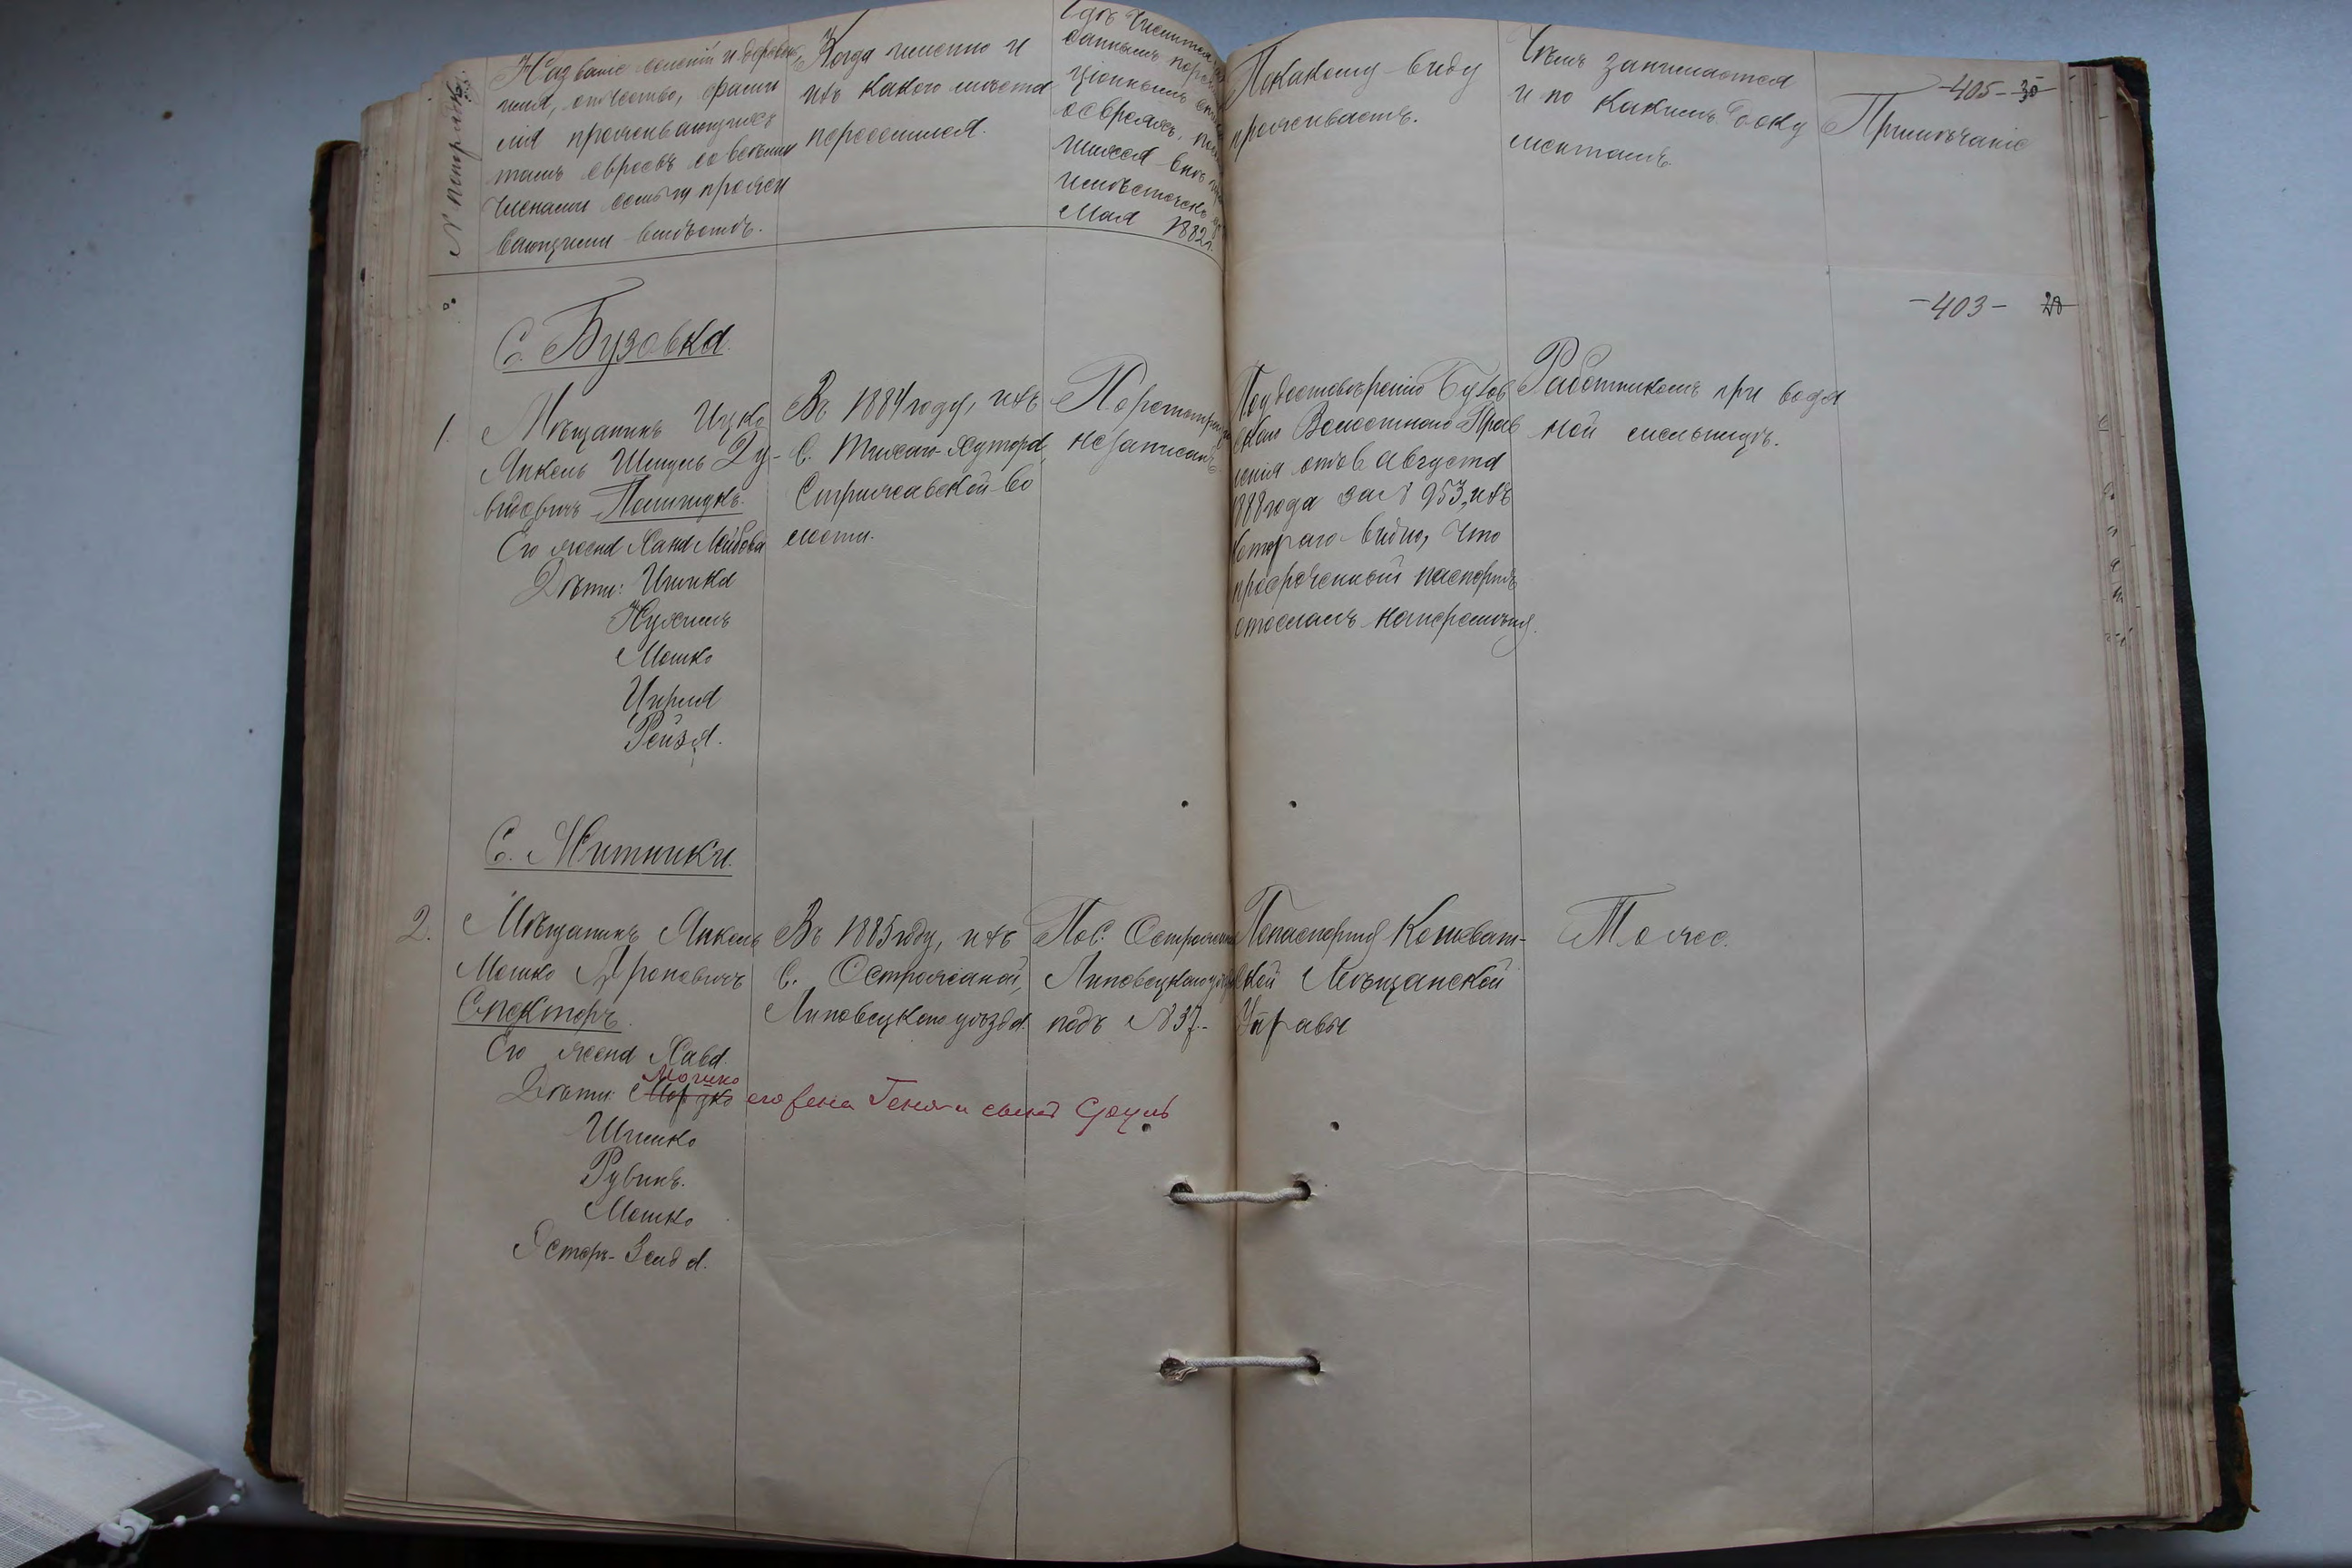 № по порядку.
Названіе селеній и деревень,
имя, отчество, фами
лія проживающихъ
тамъ евреевъ со всѣми
членами семьи прожи
вающими вмѣстѣ.
Когда именно и
изъ какого мѣста
переселился.
Гдѣ числится
даннымъ
ціоннымъ
о евреяхъ,
мѣстечко
Мая 1882 г.
По какому виду
проживаетъ.
Чѣмъ занимается
и по какимъ доку
ментамъ.
-405- 30
Примѣчаніе
-403- 28
С. Бузовка.
1. Мѣщанинъ Ицко
Янкель Шмуль Ду-
видовичъ Полищукъ.
Его жена Хана Лейбова
Дѣти: Шмика
Нухимъ
Мошко
Цирля
Рейзя.
Въ 1884 году, изъ
С. Тихаго-Хутора,
Стрижавской во
лости.
По регистраціи
не записанъ
По удостовѣренію Бузов
скаго Волостнаго Прав
ленія отъ 6 Августа
1888 года за № 953, изъ
котораго видно, что
просроченный паспортъ
отосланъ на перемѣну.
Работникомъ при водя
ной мельницѣ.
С. Житники.
2. Мѣщанинъ Янкель
Мошко Ароновичъ
Спекторъ.
Его жена Хава.
Мошко
Дѣти: Мордко его жена Геня и сынъ Сруль
Шмико
Рувинъ.
Мошко
Эстеръ-Зелда.
Въ 1885 году, изъ
С. Острожаной,
Липовецкаго уѣзда.
По С. Острожаной
Липовецкаго уѣзда
подъ № 37.-
По паспорту Кошеват-
ской Мѣщанской
Управы
Тоже.